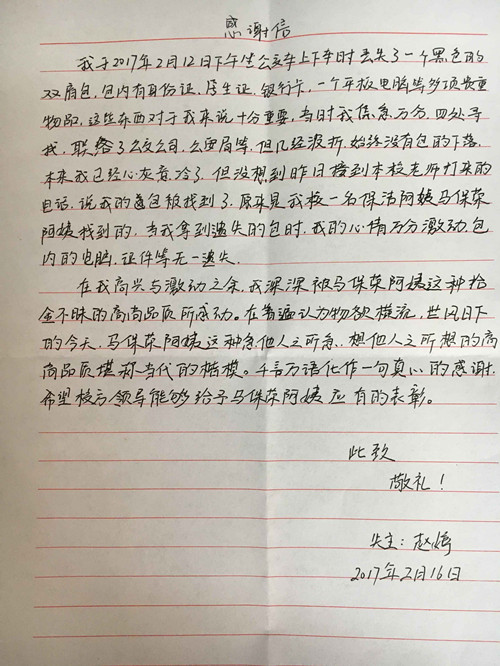 感谢信
我于2017年2月12日下午坐公交车上下车时丢失了一个黑色的
双肩包,包内有身份证,学生证,银行卡,一个平板电脑等多项贵重
物品,这些东西对于我来说十分重要,当时我焦急万分,四处寻
找,联络了公交公司,公安局等,但几经波折,始终没有包的下落,
本来我已经心灰意冷了,但没想到昨日接到本校老师打来的
电话,说我的包被找到了,原来是我校一名保洁阿姨马保荣
阿姨找到的,当我拿到遗失的包时,我的心情万分激动,包
内的电脑,证件等无一遗失.
在我高兴与激动之余,我深深被马保荣阿姨这种拾
金不昧的高尚品质所感动。在普遍认为物欲横流,世风日下
的今天,马保荣阿姨这种急他人之所急,想他人之所想的高
尚品质堪称当代的楷模。千言万语化作一句真心的感谢,
希望校方领导能够给予马保荣阿姨应有的表彰。
此致
敬礼!
失主:赵婷
2017年2月16日